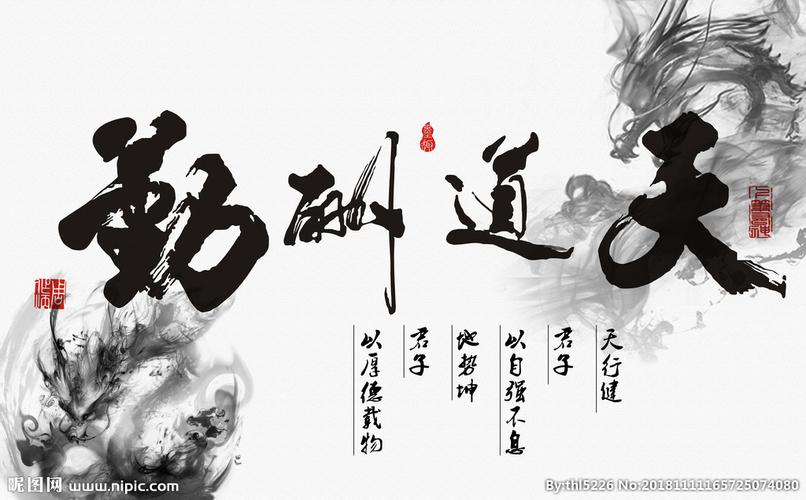 天道酬勤
天行健
君子
以自强不息
地势坤
君子
以厚德载物
昵图网 www.nipic.com
By:thl5226 No:20181111165725074080